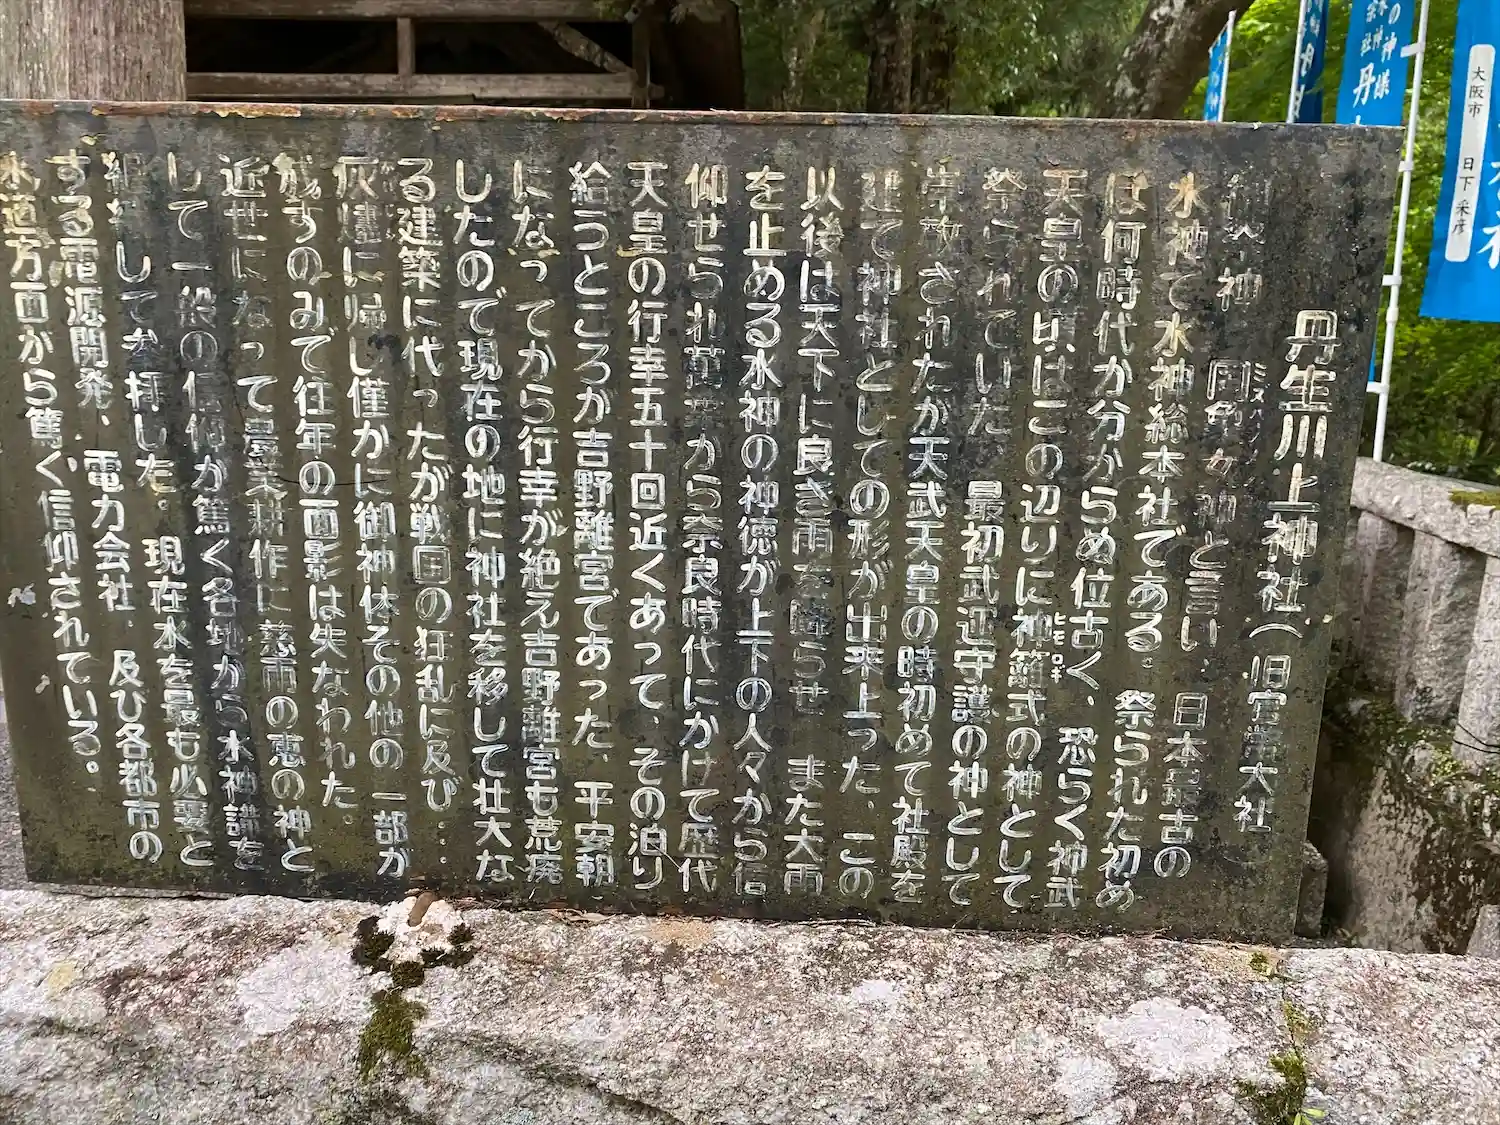 丹生川上神社(旧官幣大社)
御祭神 罔象女神と言い、日本最古の
ミズハノメノカミ
水神で水神総本社である。祭られた初め
は何時代か分からぬ位古く、恐らく神武
天皇の頃はこの辺りに神籬式の神として
ヒモロギ
祭られていた。最初武辺守護の神として
崇敬されたが天武天皇の時初めて社殿を
建て神社としての形が出来上った、この
以後は天下に良き雨を降らせ また大雨
を止める水神の神徳が上下の人々から信
仰せられ萬葉から奈良時代にかけて歴代
天皇の行幸五十回近くあって、その泊り
給うところが吉野離宮であった、平安朝
になってから行幸が絶え吉野離宮も荒廃
したので現在の地に神社を移して壮大な
る建築に代ったが戦国の狂乱に及び…
灰燼に帰し僅かに御神体その他の一部が
残すのみで往年の面影は失なわれた。
近世になって農業耕作に慈雨の恵の神と
して一般の信仰が篤く各地から水神講を
組織して参拝した。現在水を最も必要と
する電源開発、電力会社、及び各都市の
水道方面から篤く信仰されている。
の神様
丹
大阪市 日下